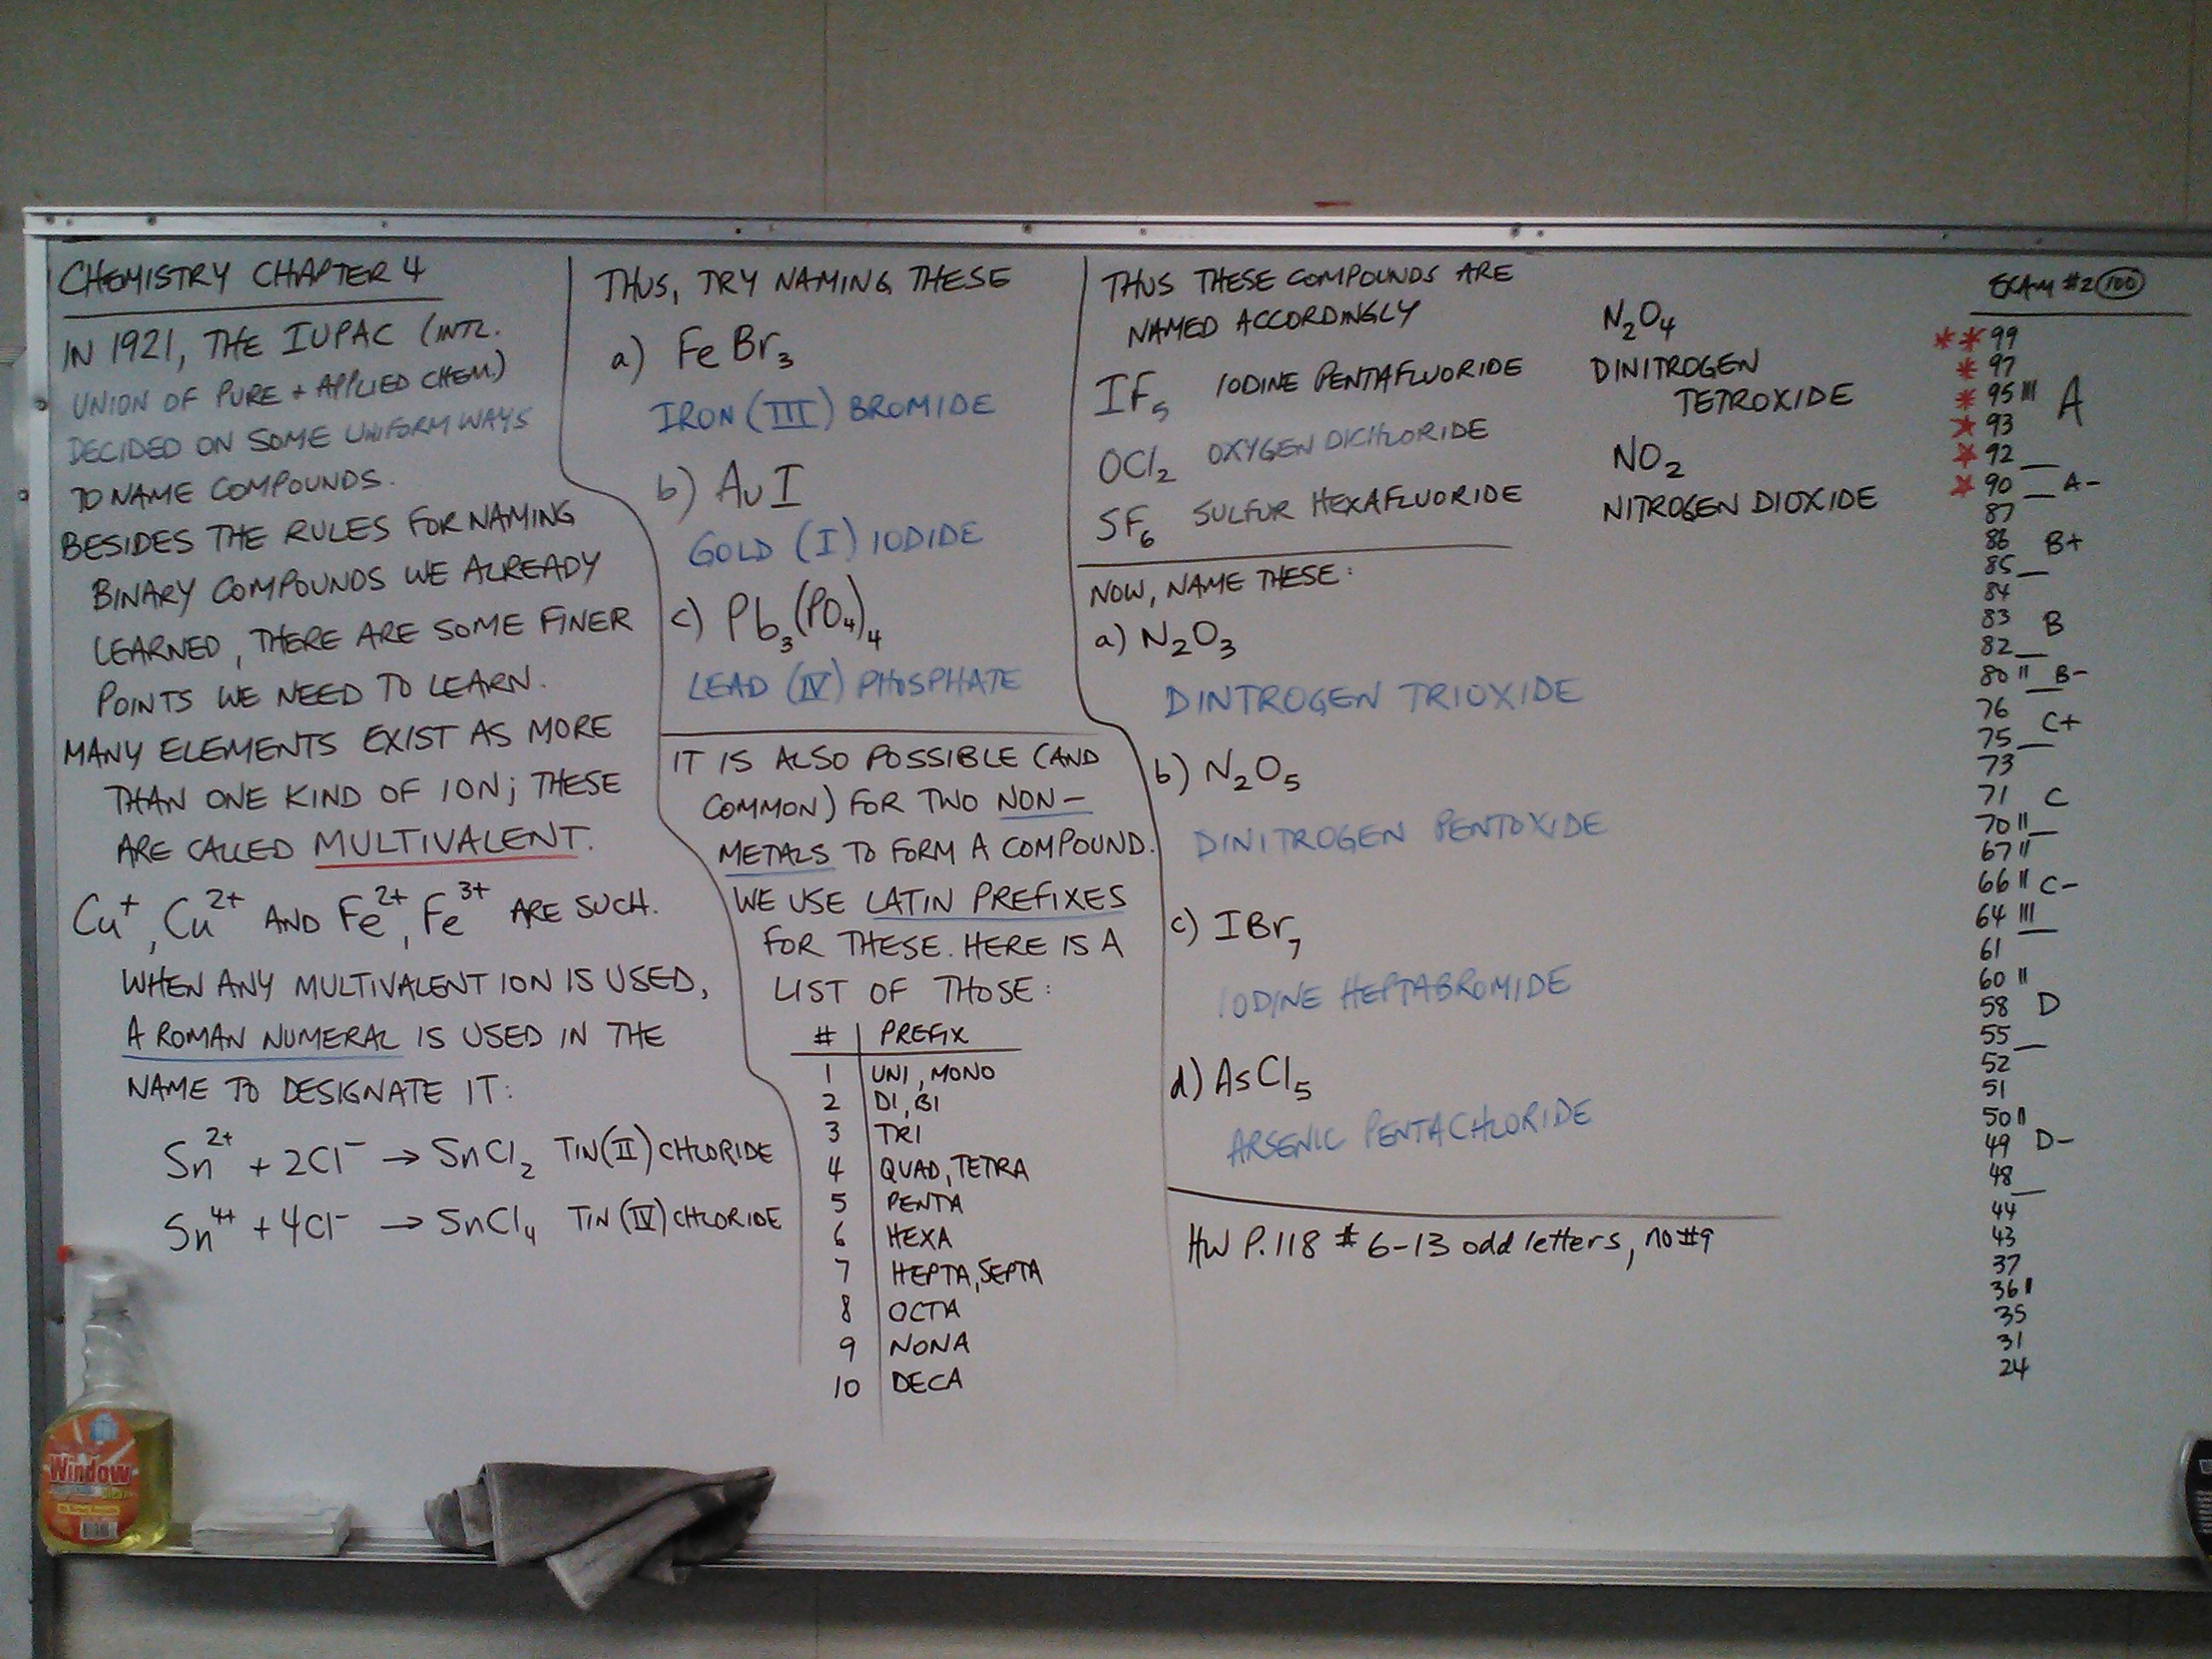 CHEMISTRY CHAPTER 4
IN 1921, THE IUPAC (INTL.
UNION OF PURE + APPLIED CHEM.)
DECIDED ON SOME UNIFORM WAYS
TO NAME COMPOUNDS.
BESIDES THE RULES FOR NAMING
BINARY COMPOUNDS WE ALREADY
LEARNED, THERE ARE SOME FINER
POINTS WE NEED TO LEARN.
MANY ELEMENTS EXIST AS MORE
THAN ONE KIND OF ION; THESE
ARE CALLED MULTIVALENT.
Cu⁺, Cu²⁺ AND Fe²⁺, Fe³⁺ ARE SUCH.
WHEN ANY MULTIVALENT ION IS USED,
A ROMAN NUMERAL IS USED IN THE
NAME TO DESIGNATE IT:
Sn²⁺ + 2Cl⁻ → SnCl₂ TIN(II) CHLORIDE
Sn⁴⁺ + 4Cl⁻ → SnCl₄ TIN (IV) CHLORIDE
THUS, TRY NAMING THESE
a) FeBr₃
IRON (III) BROMIDE
b) AuI
GOLD (I) IODIDE
c) Pb₃(PO₄)₄
LEAD (IV) PHOSPHATE
IT IS ALSO POSSIBLE (AND
COMMON) FOR TWO NON-
METALS TO FORM A COMPOUND.
WE USE LATIN PREFIXES
FOR THESE. HERE IS A
LIST OF THOSE:
# PREFIX
1 UNI, MONO
2 DI, BI
3 TRI
4 QUAD, TETRA
5 PENTA
6 HEXA
7 HEPTA, SEPTA
8 OCTA
9 NONA
10 DECA
THUS THESE COMPOUNDS ARE
NAMED ACCORDINGLY
IF₅ IODINE PENTAFLUORIDE
OCl₂ OXYGEN DICHLORIDE
SF₆ SULFUR HEXAFLUORIDE
N₂O₄
DINITROGEN
TETROXIDE
NO₂
NITROGEN DIOXIDE
NOW, NAME THESE:
a) N₂O₃
DINTROGEN TRIOXIDE
b) N₂O₅
DINITROGEN PENTOXIDE
c) IBr₇
IODINE HEPTABROMIDE
d) AsCl₅
ARSENIC PENTACHLORIDE
HW P.118 # 6-13 odd letters, no #9
EXAM #2 100
** 99
* 97
* 95 III A
* 93
* 92
* 90 A-
87
86 B+
85
84
83 B
82
80 II B-
76 C+
75
73
71 C
70 II
67 II
66 II C-
64 III
61
60 II
58 D
55
52
51
50 II
49 D-
48
44
43
37
36 II
35
31
24
Window